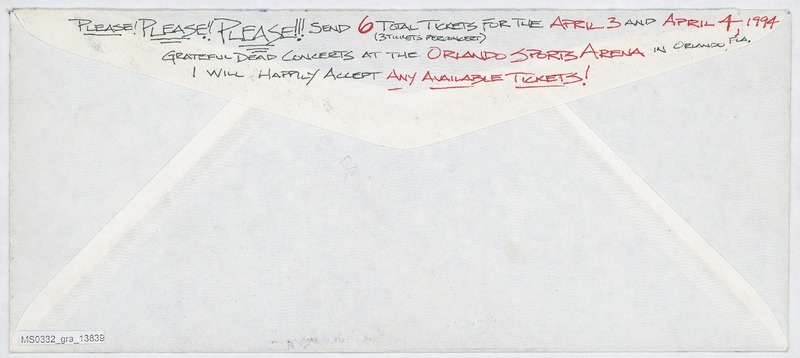 PLEASE! PLEASE!! PLEASE!!! SEND 6 TOTAL TICKETS FOR THE APRIL 3 AND APRIL 4, 1994
(3 TICKETS PER CONCERT)
GRATEFUL DEAD CONCERTS AT THE ORLANDO SPORTS ARENA IN ORLANDO, FLA.
I WILL HAPPILY ACCEPT ANY AVAILABLE TICKETS!
MS0332_gra_13839